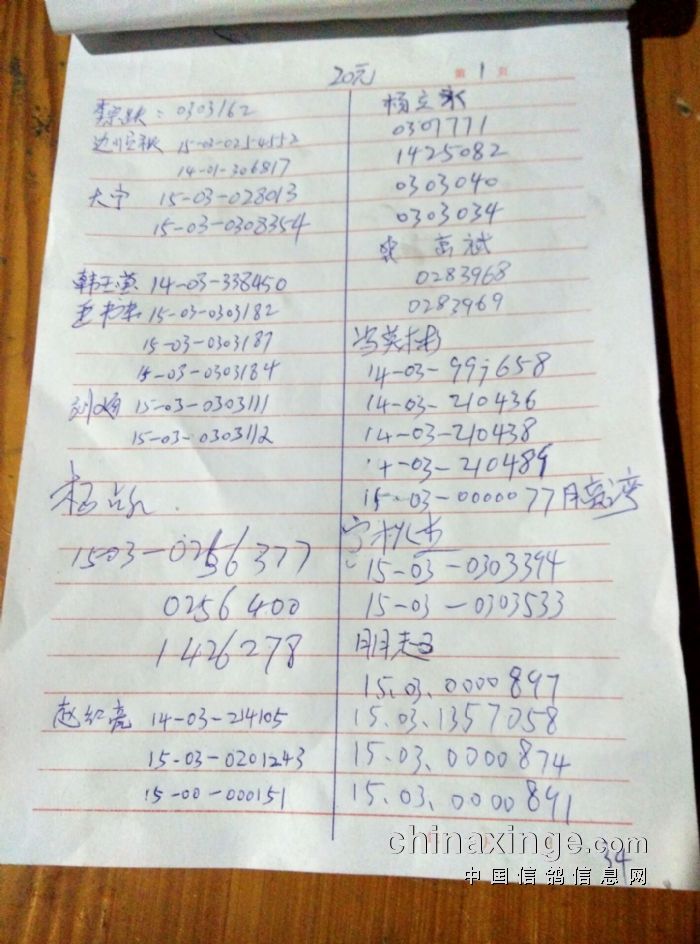 20元 第 1 页
: 0303162
15-03-0254552
14-01-306817
大宁 15-03-028013
15-03-0308354
韩玉 14-03-338450
15-03-0303182
15-03-0303187
15-03-0303184
刘 15-03-0303111
15-03-0303112
杨
15-03-0256377
0256400
1426278
赵红亮 14-03-214105
15-03-0201243
15-00-000151
杨立
0307771
1425082
0303040
0303034
高斌
0283968
0283969
冯英
14-03-995658
14-03-210436
14-03-210438
14-03-210489
15-03-0000077月亮湾
15-03-0303394
15-03-0303533
明
15.03.0000897
15.03.1357058
15.03.0000874
15.03.0000891
34
chinaxinge.com
中国信鸽信息网